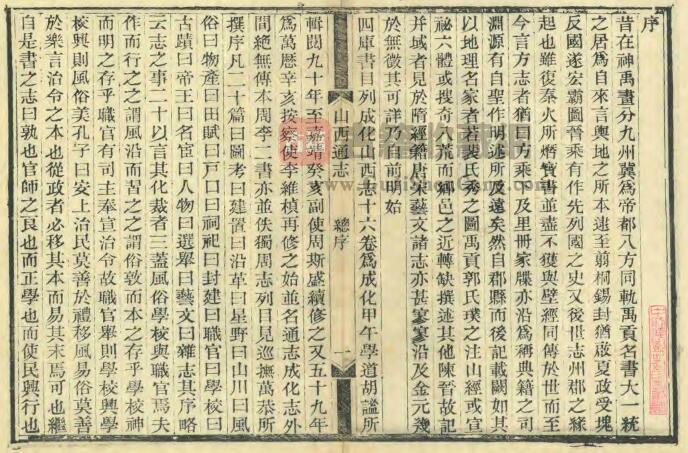 序
昔在神禹畫分九州冀為帝都八方同軌禹貢名書大一統
之居為自來言輿地之所本逮至翦桐錫封猶啟夏政受塊
反國遂宏霸圖晉乘有作先列國之史又後世志州郡之緣
起也雖復秦火所燔寶書並盡不獲與壁經同傳於世而至
今言方志者猶曰方乘以及里冊家牒亦沿為稱典籍之司
淵源有自聖作明述所及遠矣然自郡縣而後記載闕如其
以地理名家者若裴氏秀之圖禹貢郭氏璞之注山經或宣
祕六體或搜奇八荒而鄉邑之近轉缺撰述其他陳晉故記
并域者見於隋經籍唐宋藝文諸志亦甚寥寥沿及金元幾
於無徵其可詳乃自前明始
四庫書目列成化山西志十六卷為成化甲午學道胡謐所
山西通志
總序
一
輯閱九十年至嘉靖癸亥副使周斯盛續修之又五十九年
為萬歷辛亥按察使李維楨再修之始並名通志成化志外
間絕無傳本周李二書亦並佚獨周志列目見巡撫萬恭所
撰序凡二十篇曰圖考曰建置曰沿革曰星野曰山川曰風
俗曰物產曰田賦曰戶口曰祠祀曰封建曰職官曰學校曰
古蹟曰帝王曰名宦曰人物曰選舉曰藝文曰雜志其序略
云志之事二十以言其化裁者三蓋風俗學校與職官焉夫
作而行之之謂風沿而習之之謂俗敦而本之存乎學校神
而明之存乎職官有司主奉宣治令故職官舉則學校興學
校興則風俗美孔子曰安上治民莫善於禮移風易俗莫善
於樂言治令之本也從政者必移其本而易其末焉可也繼
自是書之志曰孰也官師之良也而正學也而使民興行也